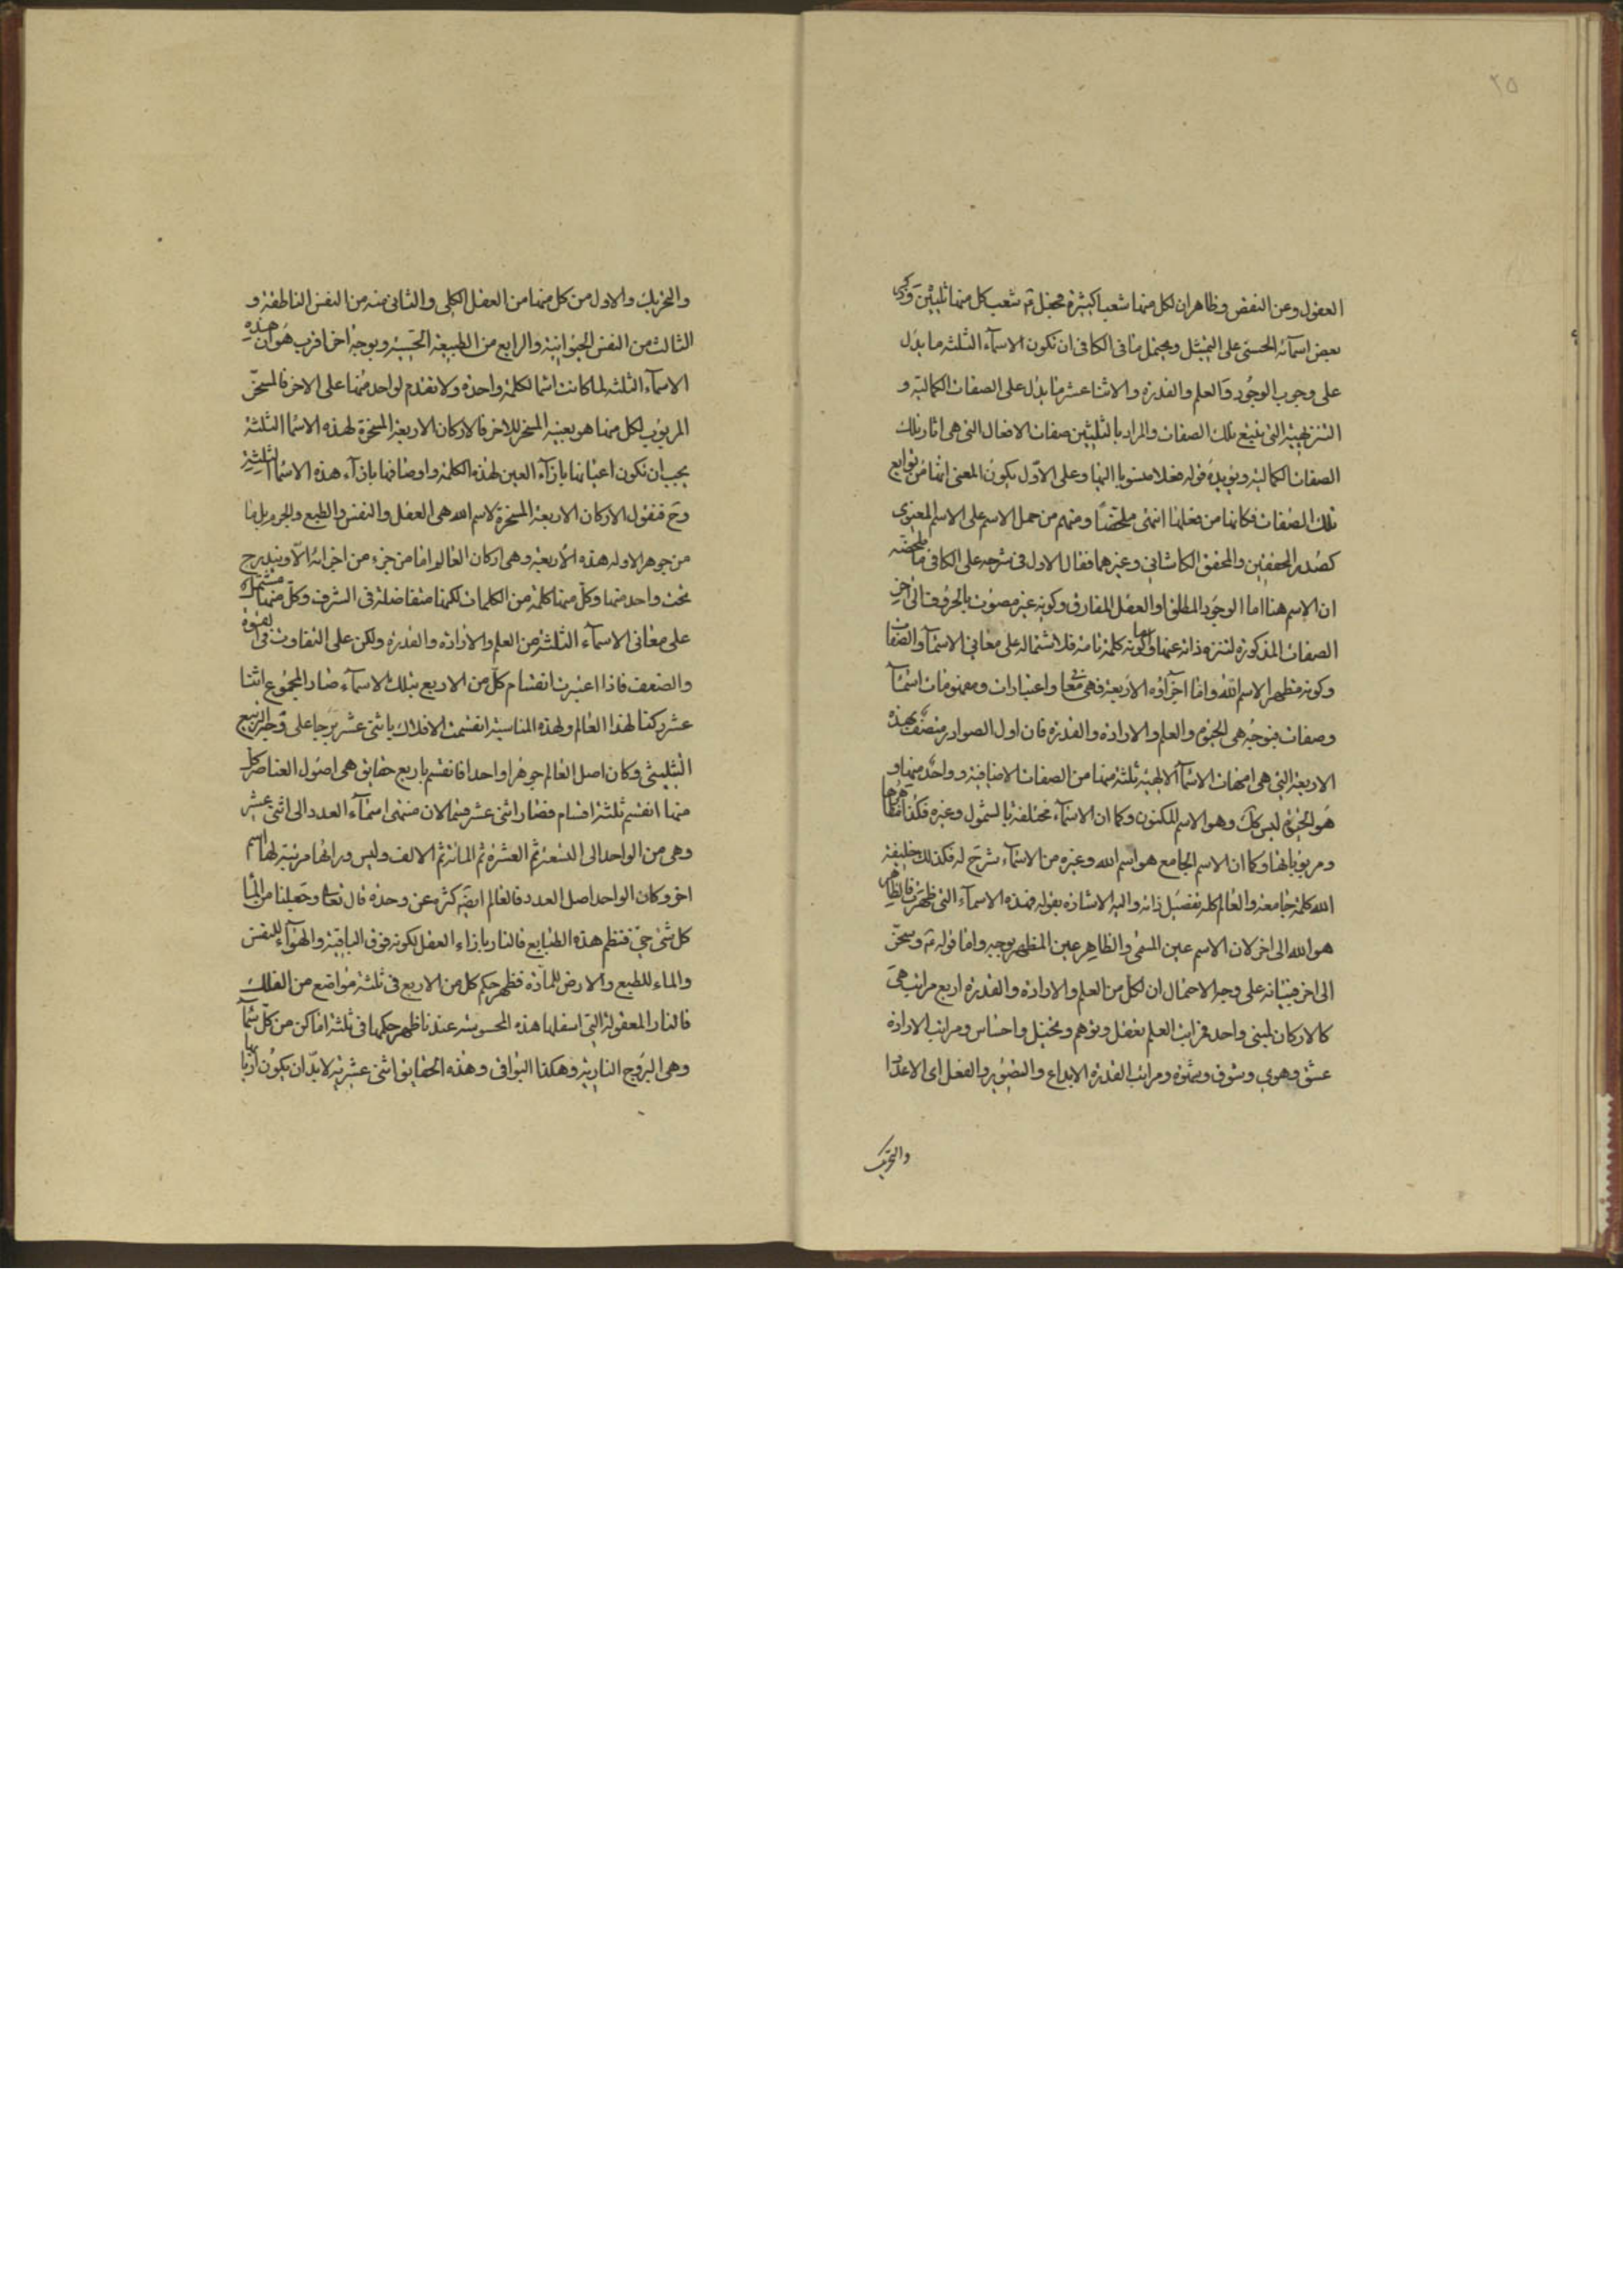 ٢٥
العقول وعن النقض وظاهر ان لكل منها شعبا كثيرة فجعل تم شعب كل منها ثلثين وذكر
بعض اسمائه الحسنى على التمثيل ويحتمل ما فى الكافى ان تكون الاسماء الثلثه ما يدل
على وجوب الوجود والعلم والقدرة والاثنا عشر ما يدل على الصفات الكمالية و
التنزيهية التى يتبع تلك الصفات والمراد بالثلثين صفات الافعال التى هى اثار تلك
الصفات الكمالية ويؤيده قوله فعلا منسوبا اليها وعلى الاول يكون المعنى انها من توابع
تلك الصفات فكانها من فعلها انتهى ملخصا ومنهم من حمل الاسم على الاسم المعنوى
كصدر المحققين والمحقق الكاشانى وغيرهما فقال الاول فى شرحه على الكافى ما ملخصه
ان الاسم هنا اما الوجود المطلق او العقل المفارق وكونه غير مصوت بالحروف الى اخر
الصفات المذكورة لتنزه ذاته عنها وكونه كلمة تامة فلاشتماله على معانى الاسماء والصفات
وكونه مظهر الاسم الله واما اجزاؤه الاربعة فهى معا واعتبارات ومفهومات اسماء
وصفات فبوجه هى الحيوة والعلم والارادة والقدرة فان اول الصوادر متصف بهذه
الاربعة التى هى امهات الاسماء الالهية ثلثة منها من الصفات الاضافية وواحد منها و
هو الحيوة ليس كك وهو الاسم المكنون وكما ان الاسماء مختلفة بالشمول وغيره فكذا مظاهرها
ومربوباتها وكما ان الاسم الجامع هو اسم الله وغيره من الاسماء شرح له فكذلك خليفة
الله كلمة جامعة والعالم كله تفصيل ذاته واليه الاشارة بقوله فهذه الاسماء التى ظهرت فالظاهر
هو الله الى اخر لان الاسم عين المسمى والظاهر عين المظهر بوجه واما قوله تم وسخر
الى اخر فبيانه على وجه الاحتمال ان لكل من العلم والارادة والقدرة اربع مراتب هى
كالاركان لبيتى واحد فمراتب العلم تعقل وتوهم وتخيل واحساس ومراتب الارادة
عشق وهوى وشوق وشهوة ومراتب القدرة الابداع والتصوير والفعل اى الاعداد
والتحريك
والتحريك والاول من كل منها من العقل الكلى والثانى منه من النفس الناطقة و
الثالث من النفس الحيوانية والرابع من الطبيعة الحسية وبوجه اخر اقرب هو ان هذه
الاسماء الثلثه لما كانت اسما لكلمة واحدة ولا تقدم لواحد منها على الاخر فالمسخر
المربوب لكل منها هو بعينه المسخر للاخر فالاركان الاربعة المسخرة لهذه الاسما الثلثة
يجب ان تكون اعيانها بازاء العين لهذه الكلمة واوصافها بازاء هذه الاسما الثلثة
وح فنقول الاركان الاربعة المسخرة لاسم الله هى العقل والنفس والطبع والجرم بل ما
من جوهر الا وله هذه الاربعة وهى اركان العالم واما من جزء من اجزائه الا ويندرج
تحت واحد منها وكل منها كلمة من الكلمات لكنها متفاضلة فى الشرف وكل منها مشتملة
على معانى الاسماء الثلثة من العلم والارادة والقدرة ولكن على التفاوت فى القوة
والضعف فاذا اعتبرت انقسام كل من الاربع بتلك الاسماء صار المجموع اثنا
عشر ركنا لهذا العالم ولهذه المناسبة انقسمت الافلاك باثنى عشر برجا على وجه التربيع
التثليثى وكان اصل العالم جوهرا واحدا فانقسم باربع حقايق هى اصول العناصر كل
منها انقسم ثلثة اقسام فصار اثنى عشر قسما لان منتهى اسماء العدد الى اثنى عشر
وهى من الواحد الى التسعة ثم العشرة ثم المائة ثم الالف وليس ورائها مرتبة لها اسم
اخر وكان الواحد اصل العدد فالعالم ايضه كثرة عن وحدة قال تعا وجعلنا من الما
كل شئ حى فنظم هذه الطبايع فالنار بازاء العقل لكونه فوق الباقية والهواء للنفس
والماء للطبع والارض للمادة فظهر حكم كل من الاربع فى ثلثة مواضع من الفلك
فالنار المعقولة التى اسفلها هذه المحسوسة عندنا ظهر حكمها فى ثلثة اماكن من كل سماء
وهى البروج النارية وهكذا البواقى وهذه الحقايق اثنى عشرية لا بد ان يكون اربابها